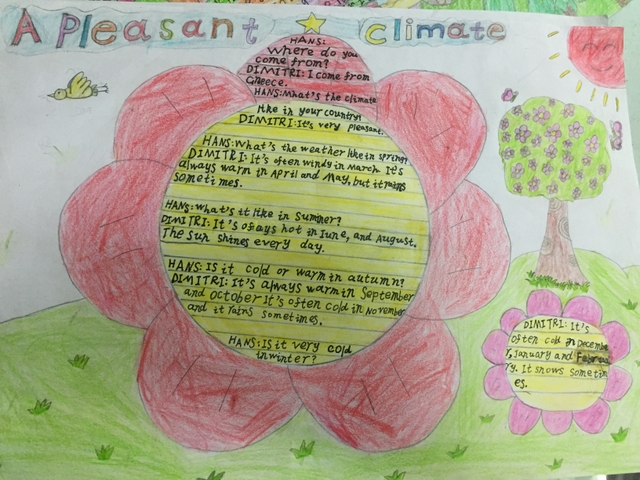 A Pleasant climate
HANS:
Where do you
come from?
DIMITRI: I come from
Greece.
HANS: What's the climate
like in your country?
DIMITRI: It's very pleasant.
HANS: What's the weather like in spring?
DIMITRI: It's often windy in March. It's
always warm in April and May, but it rains
sometimes.
HANS: What's it like in Summer?
DIMITRI: It's always hot in June, and August.
The sun shines every day.
HANS: Is it cold or warm in autumn?
DIMITRI: It's always warm in September
and October It's often cold in November
and it rains sometimes.
HANS: Is it very cold
in winter?
DIMITRI: It's
often cold in Decembe
r, January and Februa
ry. It snows sometim
es.